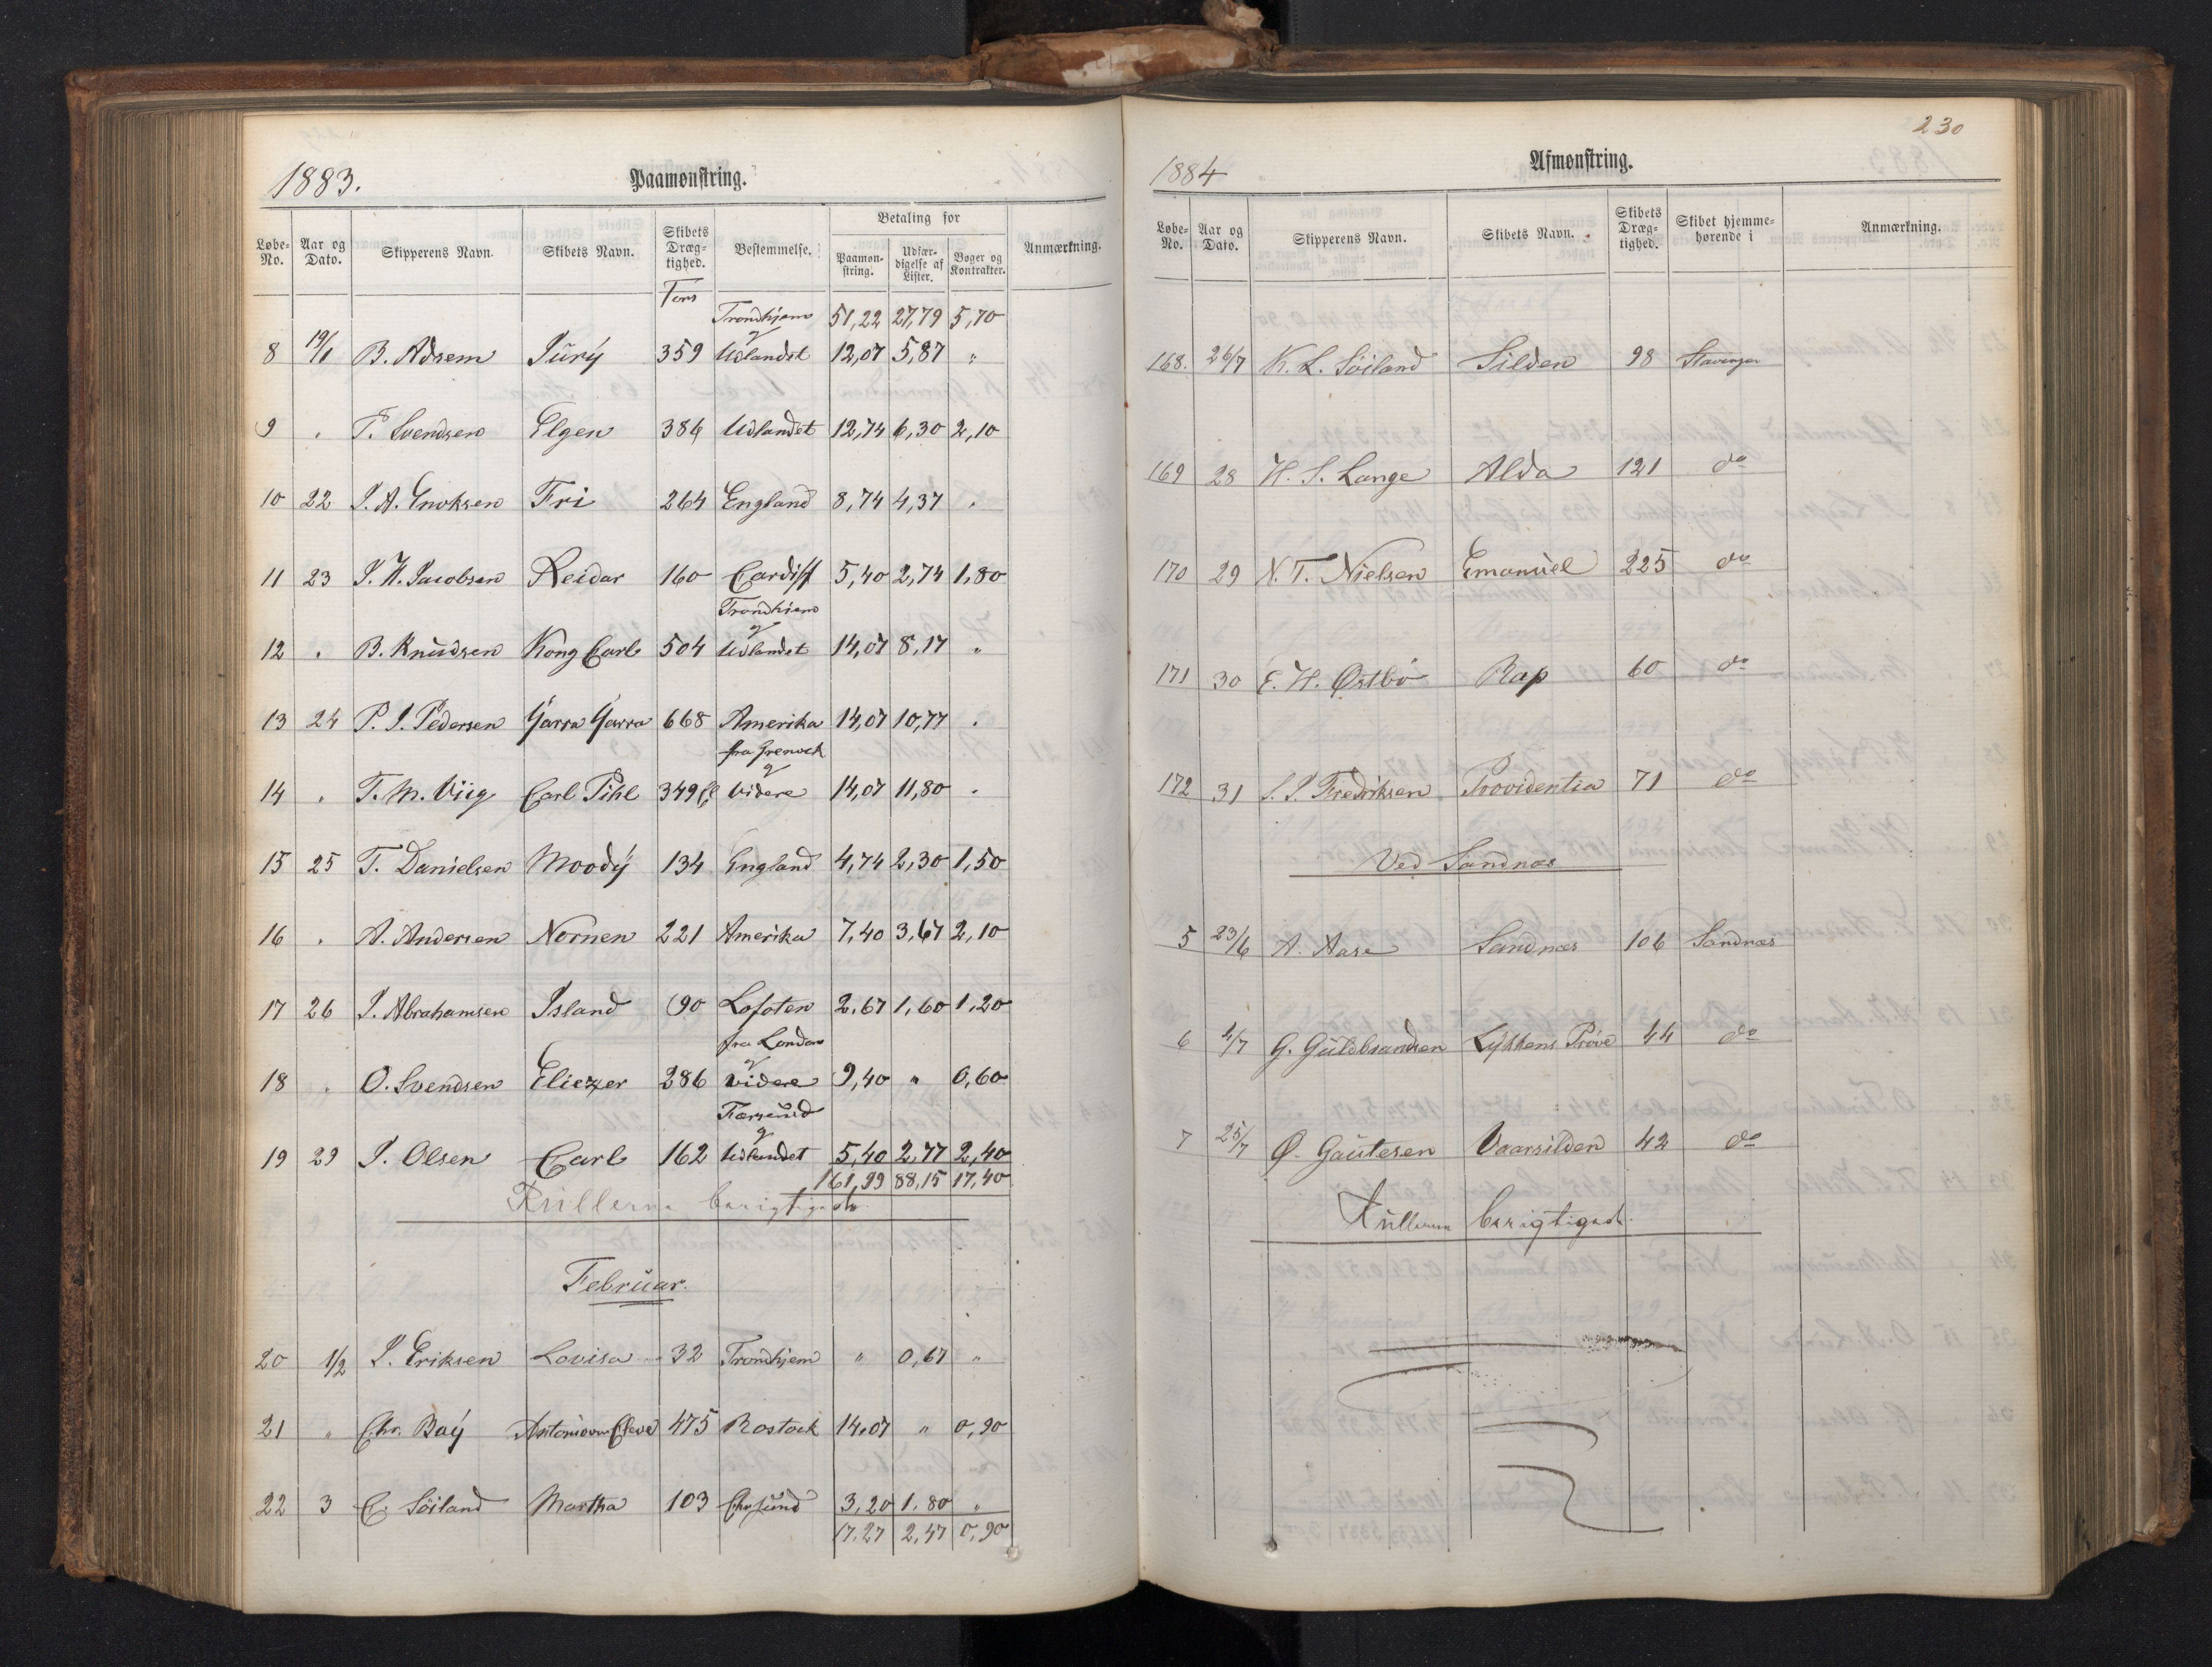 1883.
Paamønstring.
Løbe-No. | Aar og Dato. | Skipperens Navn. | Skibets Navn. | Skibets Dræg-tighed. | Bestemmelse. | Betaling for | Paamøn-string. | Udfær-digelse af Lister. | Bøger og Kontrakter. | Anmærkning.
Tons
Trondhjem 51,22 27,79 5,70
8 19/1 B. Adsem Jury 359 & Udlandet 12,07 5,87 "
9 " T. Svendsen Elgen 386 Udlandet 12,74 6,30 2,10
10 22 J. A. Enoksen Fri 264 England 8,74 4,37 "
11 23 J. H. Jacobsen Reidar 160 Cardiff 5,40 2,74 1,80
Trondhjem
12 " B. Knudsen Kong Carl 504 & Udlandet 14,07 8,17 "
13 24 P. J. Pedersen Yarra Yarra 668 Amerika 14,07 10,77 "
fra Grenock
14 " T. M. Viig Carl Pihl 349 Cl & videre 14,07 11,80 "
15 25 T. Danielsen Moody 134 England 4,74 2,30 1,50
16 " A. Andersen Nornen 221 Amerika 7,40 3,67 2,10
17 26 J. Abrahamsen Island 90 Lofoten 2,67 1,60 1,20
fra London
18 " O. Svendsen Eliezer 286 & videre 9,40 " 0,60
Farsund
19 29 J. Olsen Carl 162 & Udlandet 5,40 2,77 2,40
161,99 88,15 17,40
Rullerne berigtigede
Februar.
20 1/2 J. Eriksen Lovisa 32 Trondhjem " 0,67 "
21 " Chr. Bay 475 Rostock 14,07 " 0,90
22 3 C. Söiland Martha 103 Chrsund 3,20 1,80 "
17,27 2,47 0,90
230
1884
Afmønstring.
Løbe-No. | Aar og Dato. | Skipperens Navn. | Skibets Navn. | Skibets Dræg-tighed. | Skibet hjemme-hørende i | Anmærkning.
168. 26/7 K. L. Söiland Silden 98 Stavanger
169 28 H. S. Lange Alda 121 do
170 29 N. T. Nielsen Emanuel 225 do
171 30 E. H. Østbö Rap 60 do
172 31 S. J. Fredriksen Providentia 71 do
Ved Sandnæs
5 23/6 A. Aase Sandnæs 106 Sandnæs
6 4/7 G. Guldbrandsen Lykkens Pröve 44 do
7 25/7 Ø. Gautesen Vaarsilden 42 do
Rullerne berigtigede.